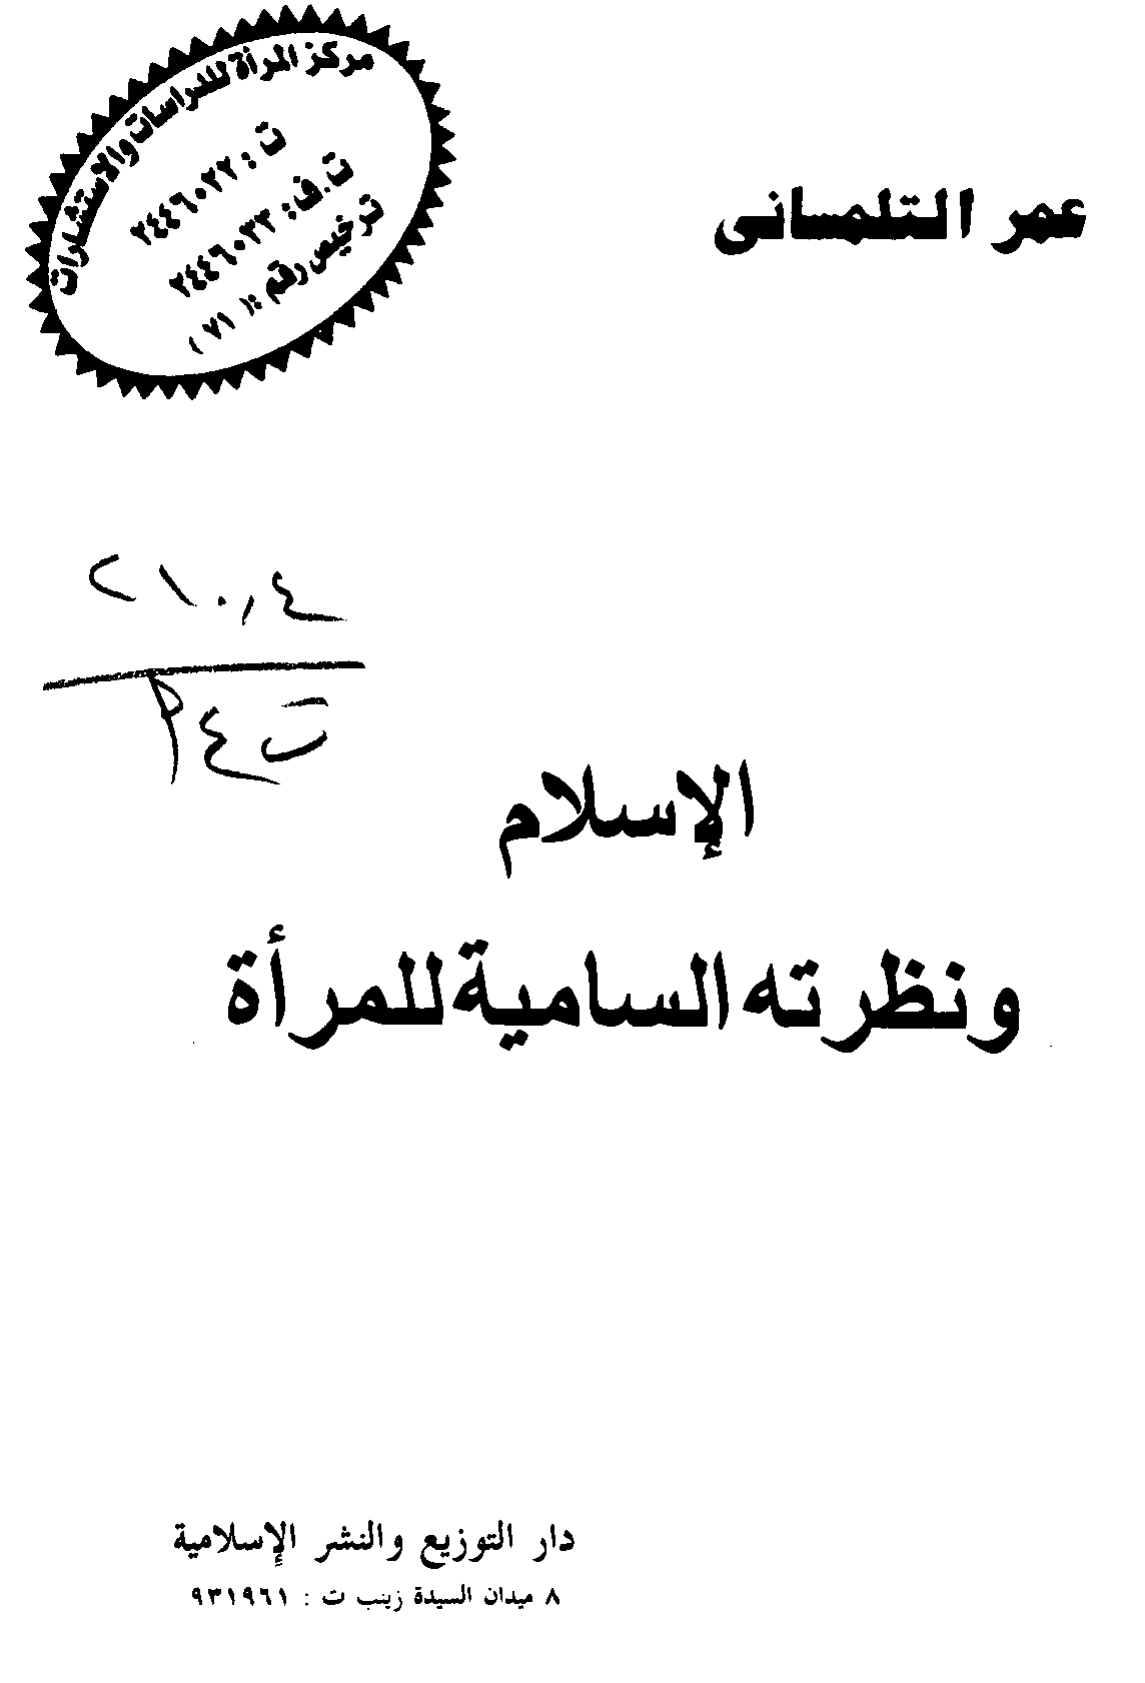 مركز المرأة للدراسات والاستشارات
ت : ٢٤٤٦٠٢٢
ت.ف: ٢٤٤٦٠٣٣
ترخيص رقم :( ٧١ )
عمر التلمسانى
٢١٠,٤
ت ٤ م
الإسلام
ونظرته السامية للمرأة
دار التوزيع والنشر الإسلامية
٨ ميدان السيدة زينب ت : ٩٣١٩٦١